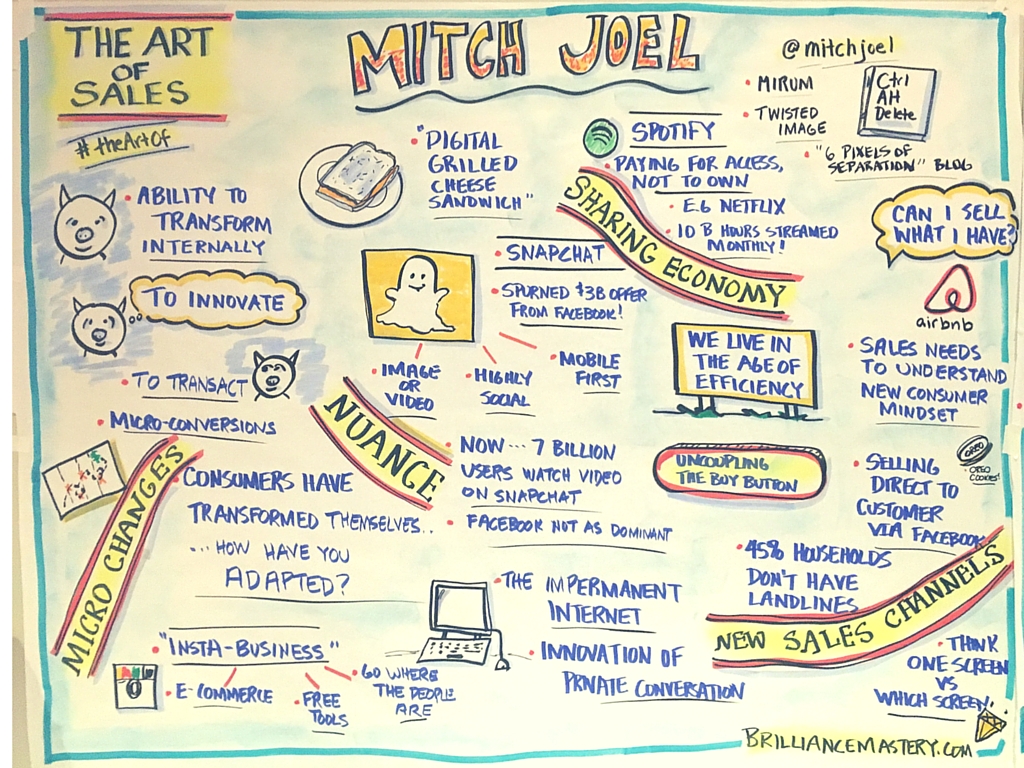 THE ART
OF
SALES
#theArtOf
MITCH JOEL
@mitchjoel
• MIRUM
• TWISTED
IMAGE
• "6 PIXELS OF
SEPARATION" BLOG
Ctrl
Alt
Delete
• ABILITY TO
TRANSFORM
INTERNALLY
TO INNOVATE
• TO TRANSACT
• MICRO-CONVERSIONS
• "DIGITAL
GRILLED
CHEESE
SANDWICH"
SPOTIFY
• PAYING FOR ACCESS,
NOT TO OWN
• E.G NETFLIX
• 10 B HOURS STREAMED
MONTHLY!
SHARING ECONOMY
CAN I SELL
WHAT I HAVE?
airbnb
• SNAPCHAT
• SPURNED $3B OFFER
FROM FACEBOOK!
• IMAGE
OR
VIDEO
• HIGHLY
SOCIAL
• MOBILE
FIRST
WE LIVE IN
THE AGE OF
EFFICIENCY
• SALES NEEDS
TO UNDERSTAND
NEW CONSUMER
MINDSET
NUANCE
• NOW... 7 BILLION
USERS WATCH VIDEO
ON SNAPCHAT
• FACEBOOK NOT AS DOMINANT
UNCOUPLING
THE BUY BUTTON
• SELLING
DIRECT TO
CUSTOMER
VIA FACEBOOK
OREO
OREO
COOKIES!
MICRO CHANGES
CONSUMERS HAVE
TRANSFORMED THEMSELVES..
...HOW HAVE YOU
ADAPTED?
• 45% HOUSEHOLDS
DON'T HAVE
LANDLINES
NEW SALES CHANNELS
• THINK
ONE SCREEN
VS
WHICH SCREEN!
• THE IMPERMANENT
INTERNET
• INNOVATION OF
PRIVATE CONVERSATION
"INSTA-BUSINESS"
• E-COMMERCE
• FREE
TOOLS
• GO WHERE
THE PEOPLE
ARE
BRILLIANCEMASTERY.COM